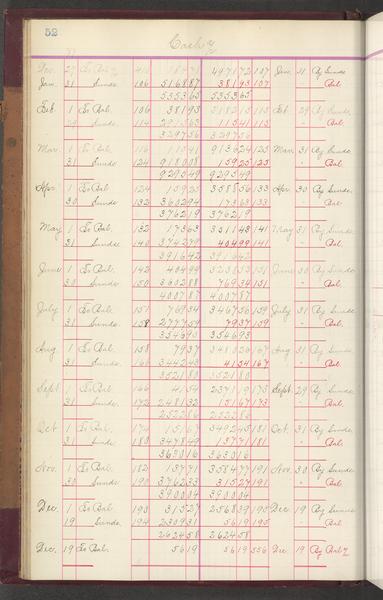 52
Cash
Jan. 31 Sunds. 106 516887 38193 107 Bal.
535365 535365
Feb 1 To Bal. 106 38193 Feb. 29 By Sunds.
29 Sunds. 114 11541 115 " Bal.
329756 329756
Mar. 1 To Bal. 116 11541 913624 125 Mar. 31 By Sunds.
31 Sunds. 124 918008 15925 125 " Bal.
929549 929549
Apr. 1 To Bal. 124 15925 358856 133 Apr. 30 By Sunds.
30 Sunds. 132 360294 17363 133 " Bal.
376219 376219
May 1 To Bal. 132 17363 351143 141 May 31 By Sunds.
31 Sunds. 140 374279 40499 141 " Bal.
391642 391642
June 1 To Bal. 142 40499 151 June 30 By Sunds.
30 Sunds. 150 360288 76934 151 " Bal.
400787 400787
July 1 To Bal. 151 76934 346756 159 July 31 By Sunds.
31 Sunds. 158 277759 7937 159 " Bal.
354693 354693
Aug 1 To Bal. 158 7937 348026 167 Aug 31 By Sunds.
31 Sunds. 166 344243 4154 167 " Bal.
352180 352180
Sept 1 To Bal. 166 4154 237119 173 Sept. 29 By Sunds.
31 Sunds. 172 248132 15167 173 " Bal.
252286 252286
Oct 1 To Bal. 174 15167 349245 181 Oct. 31 By Sunds.
31 Sunds. 180 347849 13771 181 " Bal.
363016 363016
Nov. 1 To Bal. 182 13771 358477 191 Nov. 30 By Sunds.
30 Sunds. 190 376233 31527 191 " Bal.
390004 390004
Dec. 1 To Bal. 190 31527 256839 195 Dec. 19 By Sunds.
19 Sunds. 194 230931 5619 195 " Bal.
262458 262458
Dec. 19 To Bal. 5619 5619 Dec 19 By Bal